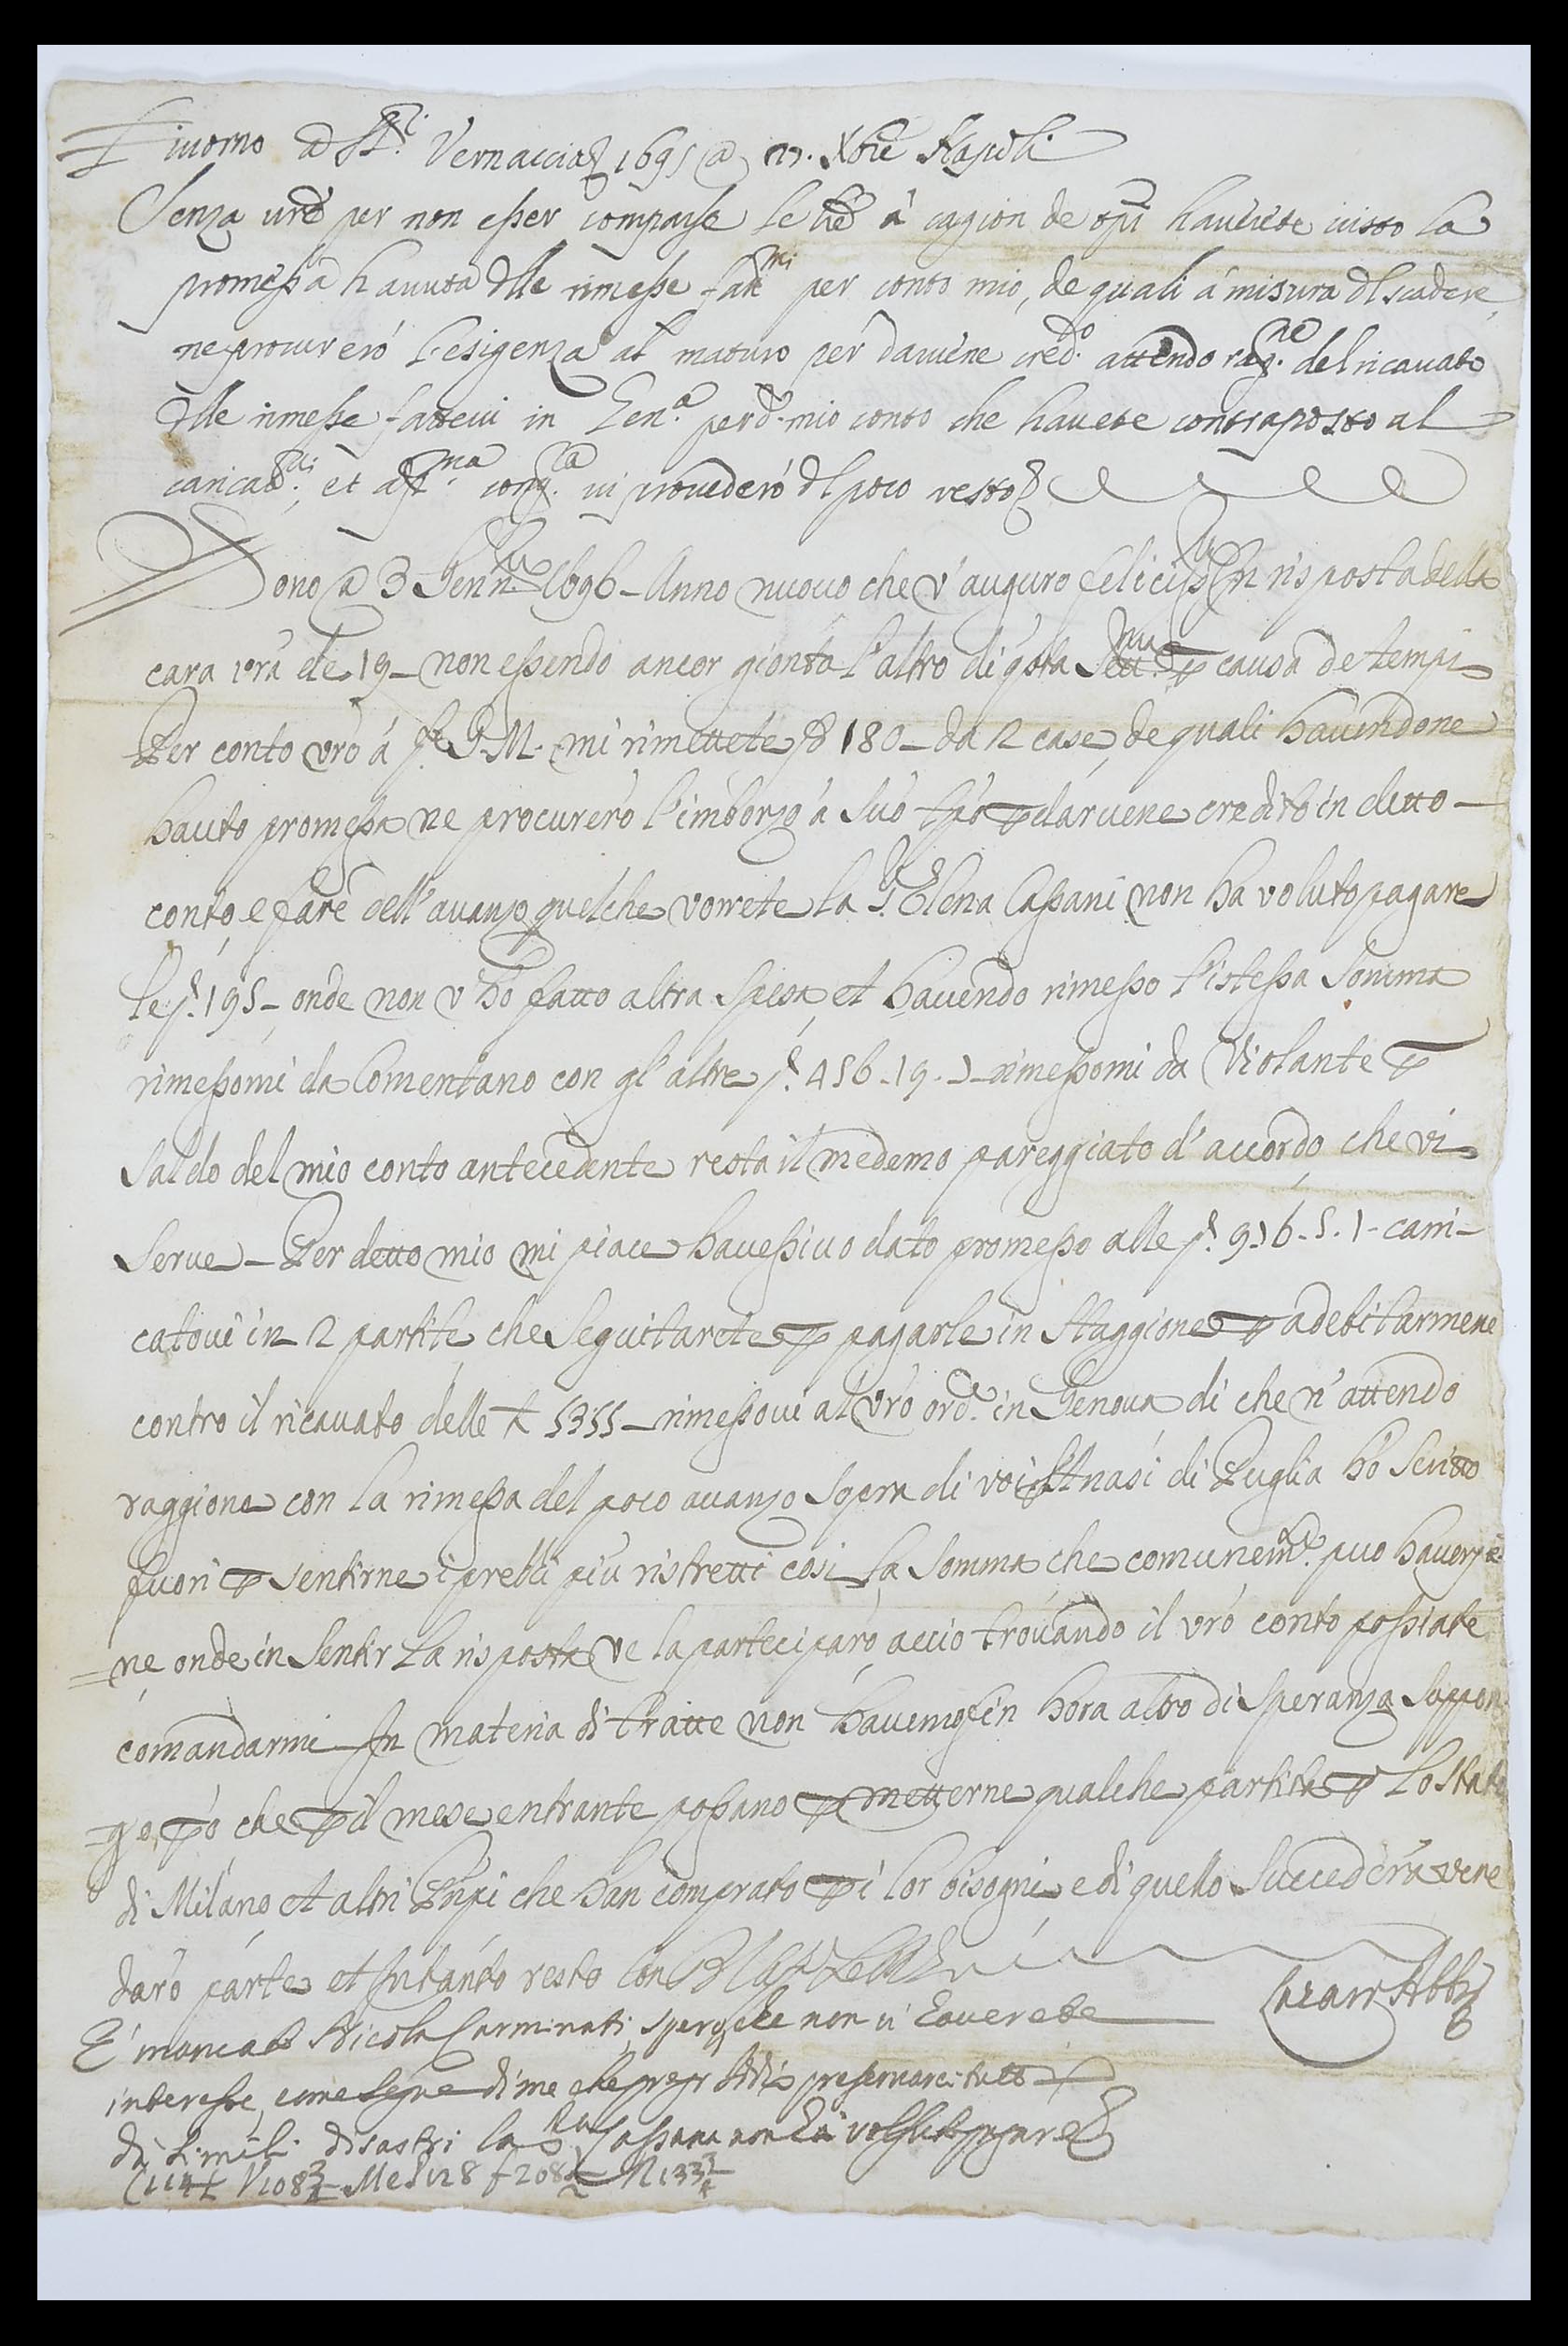 Livorno a SS.ri Vernaccia 1695 a 27. Xbre Napoli
Senza vre per non esser comparse le lre à cagion de tpi haverete visto la
promessa havuta delle rimesse fattemi per conto mio, de quali à misura del scadere,
ne procurerò l'esigenza al maturo per darvene cred.o attendo rag.ne del ricavato
delle rimesse fattevi in Gen.a per d. mio conto che havete contraposto al
caricatovi, et a p.ma cong.ra vi provederò del poco resto
Sono a 3 Genn.o 1696 - Anno nuovo che v'auguro feliciss.o In risposta della
cara vrã de 19 - non essendo ancor gionta l'altro di qsta Sett.na p causa de tempi
Per conto vrõ á G. M. mi rimettete p 180 - da 2 case, de quali havendone
hauto promessa ne procurerò l'imborzo á suo tpõ p darvene credito in detto
conto e fare dell'avanzo quel che vorrete la S.ra Elena Cassani non ha voluto pagare
le p. 195 - onde non v'hò fatto altra spesa, et havendo rimesso l'istessa somma
rimessomi da Comentano con gl'altre p. 456.19.2 - rimessomi da Violante p
saldo del mio conto antecedente resta il medemo pareggiato d'accordo che vi
serve - Per detto mio mi piace havessivo dato promesso alle p. 926.5.1 - carri-
catovi in 2 partite che seguitarete p pagarle in staggione p adebitarmene
contro il ricavato delle 5355 - rimessovi al vrõ ord.e in Genova di che n'attendo
raggione con la rimessa del poco avanzo sopra di voi di Puglia hò scritto
fuori p sentirne i prezzi più ristretti così la somma che comunem.te può haversi
ne onde in sentir la risposta ve la parteciparò acciò trovando il vrõ conto possiate
comandarmi - In materia di tratte non havemo fin hora altro di speranza suppon
go, pò che p il mese entrante possano p metterne qualche partita p lo Stato
di Milano et altri che han comprato p i lor bisogni e di quello succederà vene
darò parte et Intanto resto con
Cesare
E' mancato Nicola Carminati, spero che non vi haverete
interesse, come segue di me che prego Iddio preservarci tutti
da simili disastri la S.ra Cassana non hà volsuto pagare
V 108 3/4 Mess 128 f 208 N 133